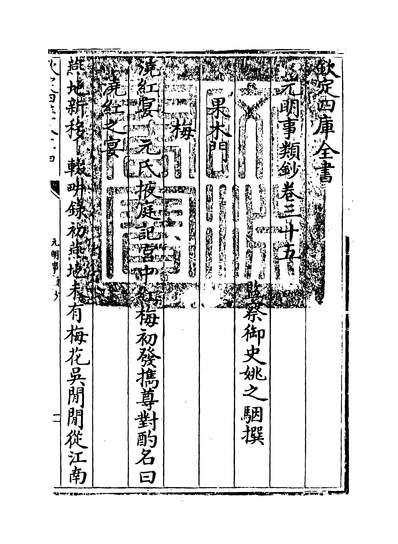 欽定四庫全書
元明事類鈔卷三十五
監察御史姚之駰撰
果木門
梅
澆紅宴 元氏掖庭記宮中紅梅初發攜尊對酌名曰
澆紅之宴
燕地新移 輟畊錄初燕地未有梅花吳閒閒從江南
元明事類鈔